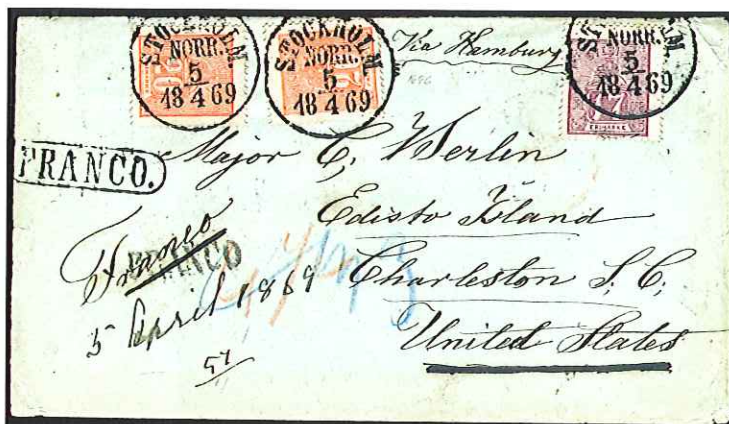 STOCKHOLM
NORR.
5
18 4 69
STOCKHOLM
NORR.
5
18 4 69
Via Hamburg
STOCKHOLM
NORR.
5
18 4 69
FRANCO.
Major C, Werlin
Edisto Island
Charleston S. C;
United States
Franco
FRANCO
5 April 1869